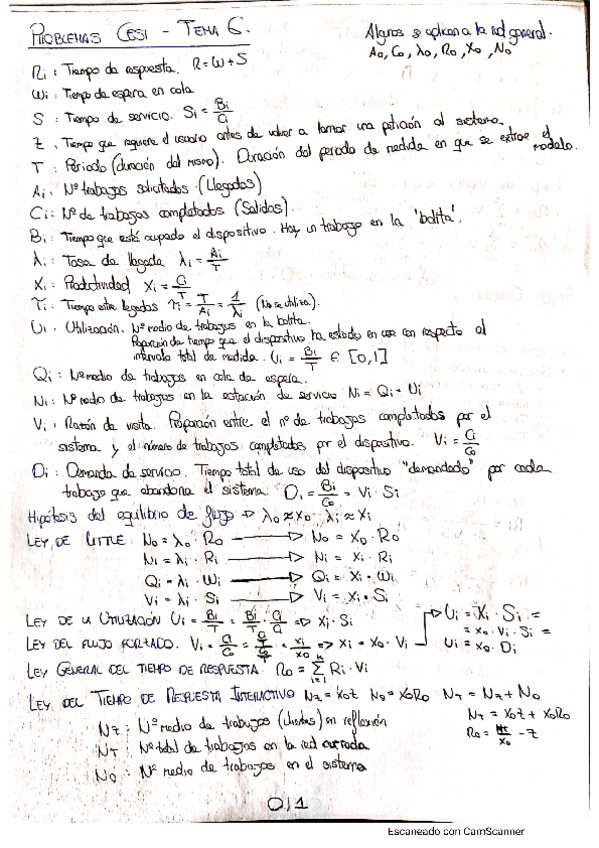 PROBLEMAS CESI - TEMA 6.
Algunos se aplican a la red general.
A0, C0, λ0, R0, X0, N0
Ri : Tiempo de respuesta. R = W + S
Wi : Tiempo de espera en cola
S : Tiempo de servicio. Si = Bi/Ci
Z : Tiempo que requiere el usuario antes de volver a lanzar una petición al sistema.
T : Periodo (duración del mismo). Duración del periodo de medida en que se extrae el modelo.
Ai : Nº trabajos solicitados (Llegados)
Ci : Nº de trabajos completados (Salidas).
Bi : Tiempo que está ocupado el dispositivo. Hay un trabajo en la "bolita".
λi : Tasa de llegada λi = Ai/T
Xi : Productividad Xi = Ci/T
Ti : Tiempo entre llegadas Ti = T/Ai = 1/λi (No se utiliza).
Ui : Utilización. Nº medio de trabajos en la bolita.
Proporción de tiempo que el dispositivo ha estado en uso con respecto al
intervalo total de medida. Ui = Bi/T ∈ [0,1]
Qi : Nº medio de trabajos en cola de espera.
Ni : Nº medio de trabajos en la estación de servicio Ni = Qi - Ui
Vi : Razón de visita. Proporción entre el nº de trabajos completados por el
sistema y el número de trabajos completados por el dispositivo. Vi = Ci/C0
Di : Demanda de servicio. Tiempo total de uso del dispositivo "demandado" por cada
trabajo que abandona el sistema. Di = Bi/C0 = Vi · Si
Hipótesis del equilibrio de flujo → λ0 ≈ X0 λi ≈ Xi
LEY DE LITTLE N0 = λ0 · R0 → N0 = X0 · R0
Ni = λi · Ri → Ni = Xi · Ri
Qi = λi · Wi → Qi = Xi · Wi
Vi = λi · Si → Vi = Xi · Si
LEY DE LA UTILIZACIÓN Ui = Bi/T = Bi/T · Ci/Ci => Xi · Si
Ui = Xi · Si =
= X0 · Vi · Si =
LEY DEL FLUJO FORZADO. Vi = Ci/C0 = Ci/T / C0/T = Xi/X0 => Xi = X0 · Vi
Ui = X0 · Di
LEY GENERAL DEL TIEMPO DE RESPUESTA R0 = Σ Ri · Vi
LEY DEL TIEMPO DE RESPUESTA INTERACTIVO NZ = X0Z N0 = X0R0 NT = NZ + N0
NT = X0Z + X0R0
R0 = NT/X0 - Z
NZ : Nº medio de trabajos (clientes) en reflexión
NT : Nº total de trabajos en la red cerrada
N0 : Nº medio de trabajos en el sistema
0/1
Escaneado con CamScanner